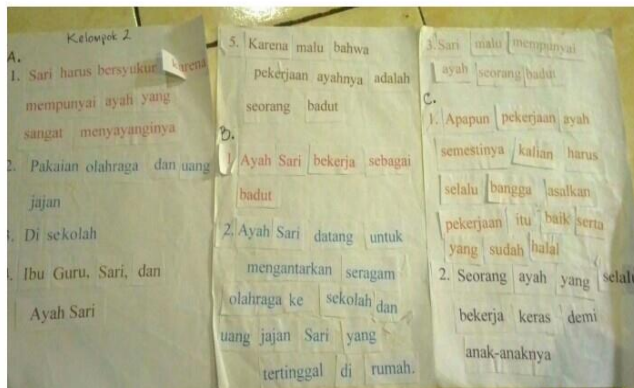 Kelompok 2
A.
1. Sari harus bersyukur karena
mempunyai ayah yang
sangat menyayanginya
2. Pakaian olahraga dan uang
jajan
3. Di sekolah
4. Ibu Guru, Sari, dan
Ayah Sari
5. Karena malu bahwa
pekerjaan ayahnya adalah
seorang badut
B.
1 Ayah Sari bekerja sebagai
badut
2. Ayah Sari datang untuk
mengantarkan seragam
olahraga ke sekolah dan
uang jajan Sari yang
tertinggal di rumah.
3. Sari malu mempunyai
ayah seorang badut
C.
1. Apapun pekerjaan ayah
semestinya kalian harus
selalu bangga asalkan
pekerjaan itu baik serta
yang sudah halal
2. Seorang ayah yang selalu
bekerja keras demi
anak-anaknya